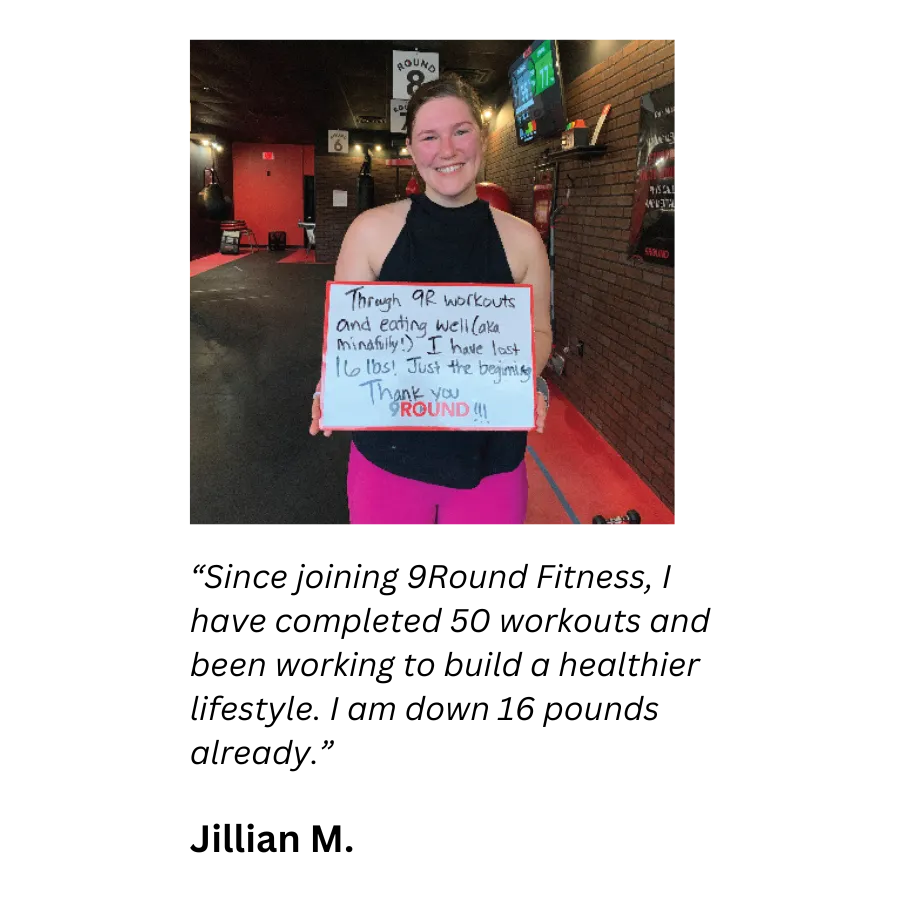 ROUND
8
ROUND
6
Through 9R workouts
and eating well (aka
mindfully!) I have lost
16 lbs! Just the beginning
Thank you
9ROUND !!!
9ROUND
“Since joining 9Round Fitness, I
have completed 50 workouts and
been working to build a healthier
lifestyle. I am down 16 pounds
already.”
Jillian M.